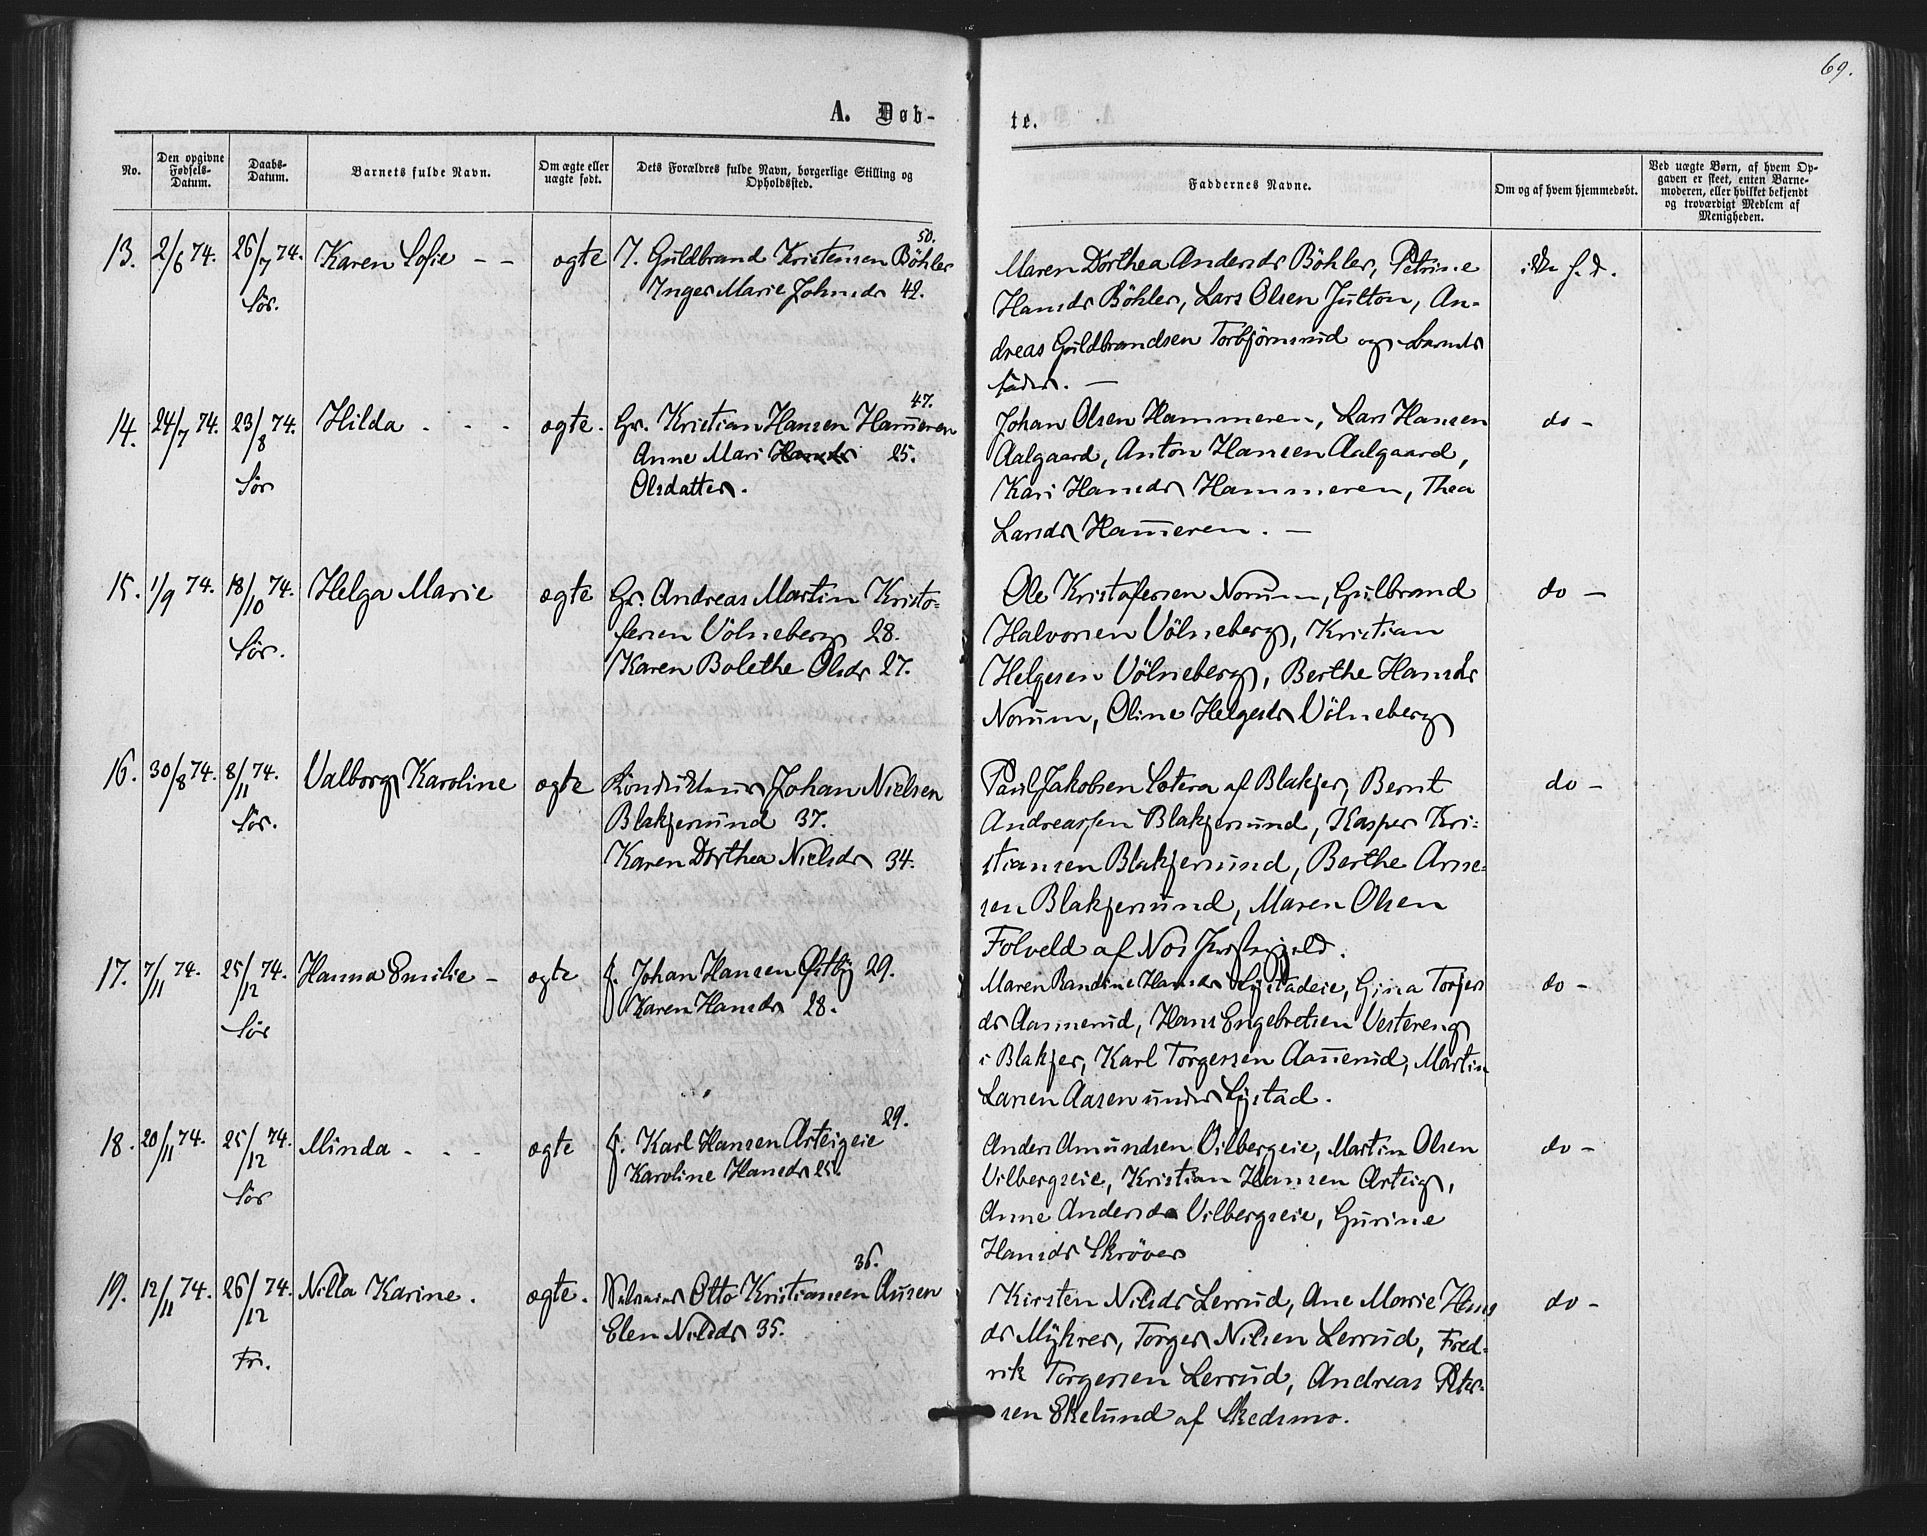 69.
A. Døb-
te.
No.
Den opgivne Fødsels-Datum.
Daabs-Datum.
Barnets fulde Navn.
Om ægte eller uægte født.
Dets Forældres fulde Navn, borgerlige Stilling og Opholdssted.
Faddernes Navne.
Om og af hvem hjemmedøbt.
Ved uægte Børn, af hvem Op-
gaven er skeet, enten Barne-
moderen, eller hvilket bekjendt
og troværdigt Medlem af
Menigheden.
13. 2/6 74. 26/7 74. Karen Sofie - - ægte I. Guldbrand Kristensen Böhler 50.
Sör. Inger Marie Johnsdr 42.
Maren Dorthea Andersdr Böhler, Petrine ikke h. d.
Hansdr Böhler, Lars Olsen Julton, An-
dreas Guldbrandsen Torbjörnsrud og Barnets
fader. —
14. 24/7 74. 23/8 74. Hilda - - - ægte. Gr. Kristian Hansen Hammeren 47.
Sör Anne Mari Hansdr 25.
Olsdatter.
Johan Olsen Hammeren, Lars Hansen do -
Aalgaard, Anton Hansen Aalgaard,
Kari Hansdr Hammeren, Thea
Larsdr Hammeren. —
15. 1/9 74. 18/10 74. Helga Marie ægte Gr. Andreas Martin Kristo-
Sör. fersen Völneberg 28.
Karen Bolethe Olsdr 27.
Ole Kristofersen Norum, Gulbrand do —
Halvorsen Völneberg, Kristian
Helgesen Völneberg, Berthe Hansdr
Norum, Oline Helgesdr Völneberg
16. 30/8 74. 8/11 74. Valborg Karoline ægte Kondukteur Johan Nielsen
Sör. Blakjersund 37.
Karen Dorthea Nielsdr 34.
Paul Jakobsen Sætera af Blakjer, Bernt do -
Andreassen Blakjersund, Kasper Kri-
stiansen Blakjersund, Berthe Arne-
sen Blakjersund, Maren Olsen
Folveld af Næs Prestegjeld.
17. 7/11 74. 25/12 74. Hanna Emilie - ægte f. Johan Hansen Østby 29.
Sör Karen Hansdr 28.
Maren Randine Hansdr Lystadeie, Gina Torgers do -
dr Aamerud, Hans Engebretsen Vestereng
i Blakjer, Karl Torgersen Aamerud, Martin
Larsen Aasen under Lystad.
18. 20/11 74. 25/12 74. Minda - - - ægte f. Karl Hansen Arteigeie 29.
Sör Karoline Hansdr 25.
Anders Amundsen Vilbergeie, Martin Olsen do -
Vilbergseie, Kristian Hansen Arteig,
Anne Andersdr Vilbergseie, Gurine
Hansdr Skröver
19. 12/11 74. 26/12 74. Nilla Karine. ægte. Otto Kristiansen Ausen 36.
Fr. Elen Nilsdr 35.
Kirsten Nilsdr Lerrud, Ane Marie Hans do -
dr Myhrer, Torger Nilsen Lerrud, Fred-
rik Torgersen Lerrud, Andreas Peter-
sen Ekelund af Skedsmo.